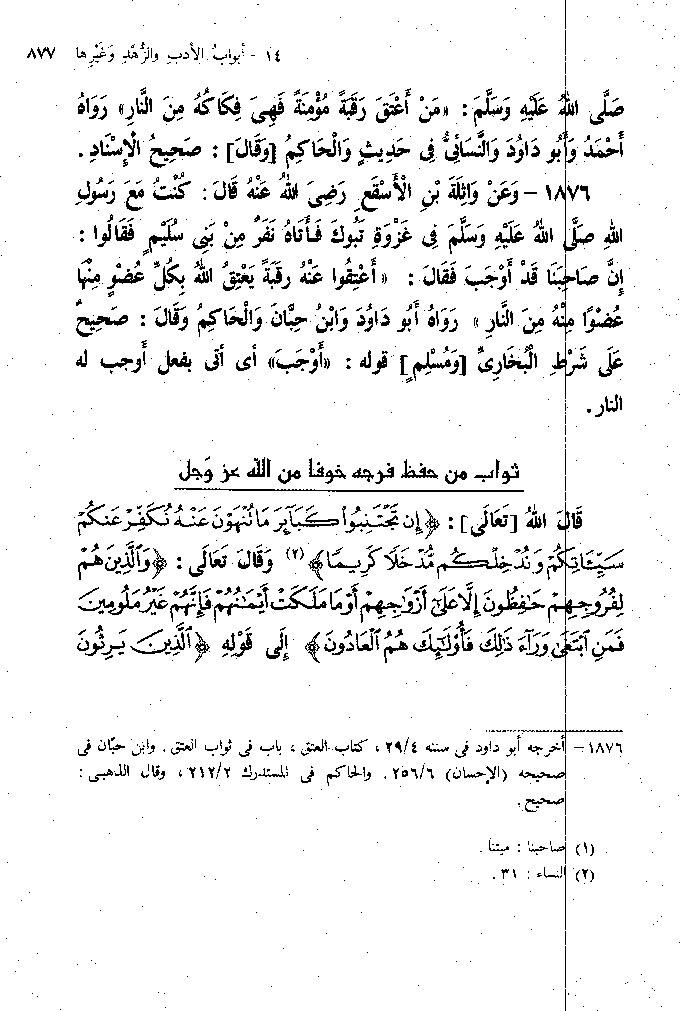 ١٤ - أبوابُ الأدبِ والزُّهْدِ وَغَيْرِها ٨٧٧
صَلَّى اللهُ عَلَيْهِ وَسَلَّمَ : «مَنْ أَعْتَقَ رَقَبَةً مُؤْمِنَةً فَهِيَ فِكَاكُهُ مِنَ النَّارِ» رَوَاهُ
أَحْمَدُ وَأَبُو دَاوُدَ وَالنَّسَائِيُّ فِي حَدِيثٍ وَالْحَاكِمُ [وَقَالَ] : صَحِيحُ الْإِسْنَادِ .
١٨٧٦ - وَعَنْ وَاثِلَةَ بْنِ الْأَسْقَعِ رَضِيَ اللهُ عَنْهُ قَالَ : كُنْتُ مَعَ رَسُولِ
اللهِ صَلَّى اللهُ عَلَيْهِ وَسَلَّمَ فِي غَزْوَةِ تَبُوكَ فَأَتَاهُ نَفَرٌ مِنْ بَنِي سُلَيْمٍ فَقَالُوا :
إِنَّ صَاحِبَنَا قَدْ أَوْجَبَ فَقَالَ : «أَعْتِقُوا عَنْهُ رَقَبَةً يَعْتِقُ اللهُ بِكُلِّ عُضْوٍ مِنْهَا
عُضْوًا مِنْهُ مِنَ النَّارِ» رَوَاهُ أَبُو دَاوُدَ وَابْنُ حِبَّانَ وَالْحَاكِمُ وَقَالَ : صَحِيحٌ
عَلَى شَرْطِ الْبُخَارِيِّ [وَمُسْلِمٍ] قوله : «أَوْجَبَ» أى أتى بفعل أوجب له
النار .
ثواب من حفظ فرجه خوفا من الله عز وَجل
قَالَ اللهُ [تَعَالَى] : ﴿إِن تَجْتَنِبُوا۟ كَبَآئِرَ مَا تُنْهَوْنَ عَنْهُ نُكَفِّرْ عَنكُمْ
سَيِّئَاتِكُمْ وَنُدْخِلْكُم مُّدْخَلًا كَرِيمًا﴾ (٢) وَقَالَ تَعَالَى : ﴿وَٱلَّذِينَ هُمْ
لِفُرُوجِهِمْ حَافِظُونَ إِلَّا عَلَىٰٓ أَزْوَاجِهِمْ أَوْ مَا مَلَكَتْ أَيْمَانُهُمْ فَإِنَّهُمْ غَيْرُ مَلُومِينَ
فَمَنِ ٱبْتَغَىٰ وَرَآءَ ذَٰلِكَ فَأُو۟لَـٰٓئِكَ هُمُ ٱلْعَادُونَ﴾ إِلَى قَوْلِهِ ﴿ٱلَّذِينَ يَرِثُونَ
١٨٧٦ - أخرجه أبو داود فى سننه ٢٩/٤ ، كتاب العتق ، باب فى ثواب العتق . وابن حبّان فى
صحيحه (الإحسان) ٢٥٦/٦ . والحاكم فى المستدرك ٢١٢/٢ ، وقال الذهبى :
صحيح .
(١) صاحبنا : ميتنا .
(٢) النساء : ٣١ .